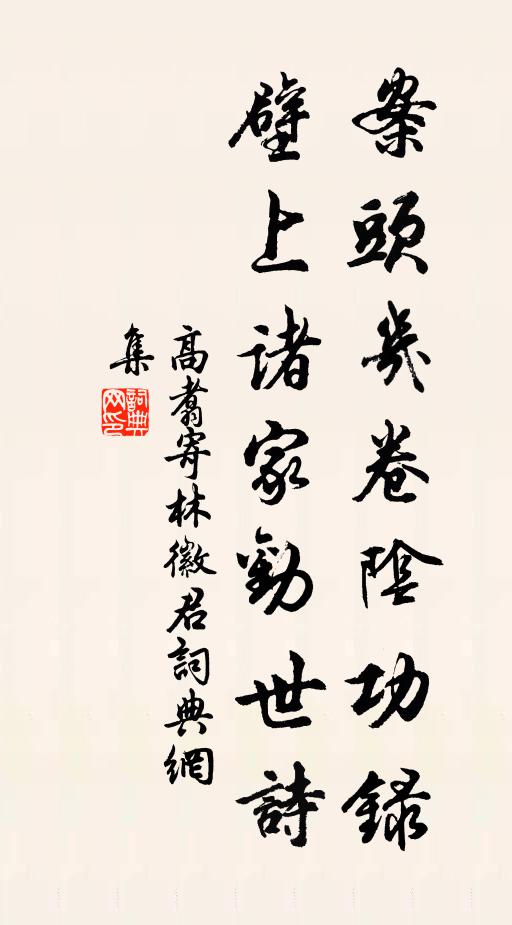 案頭幾卷陰功錄
壁上諸家勸世詩
高翥寄林徽君詞典網
集
詞典
网印